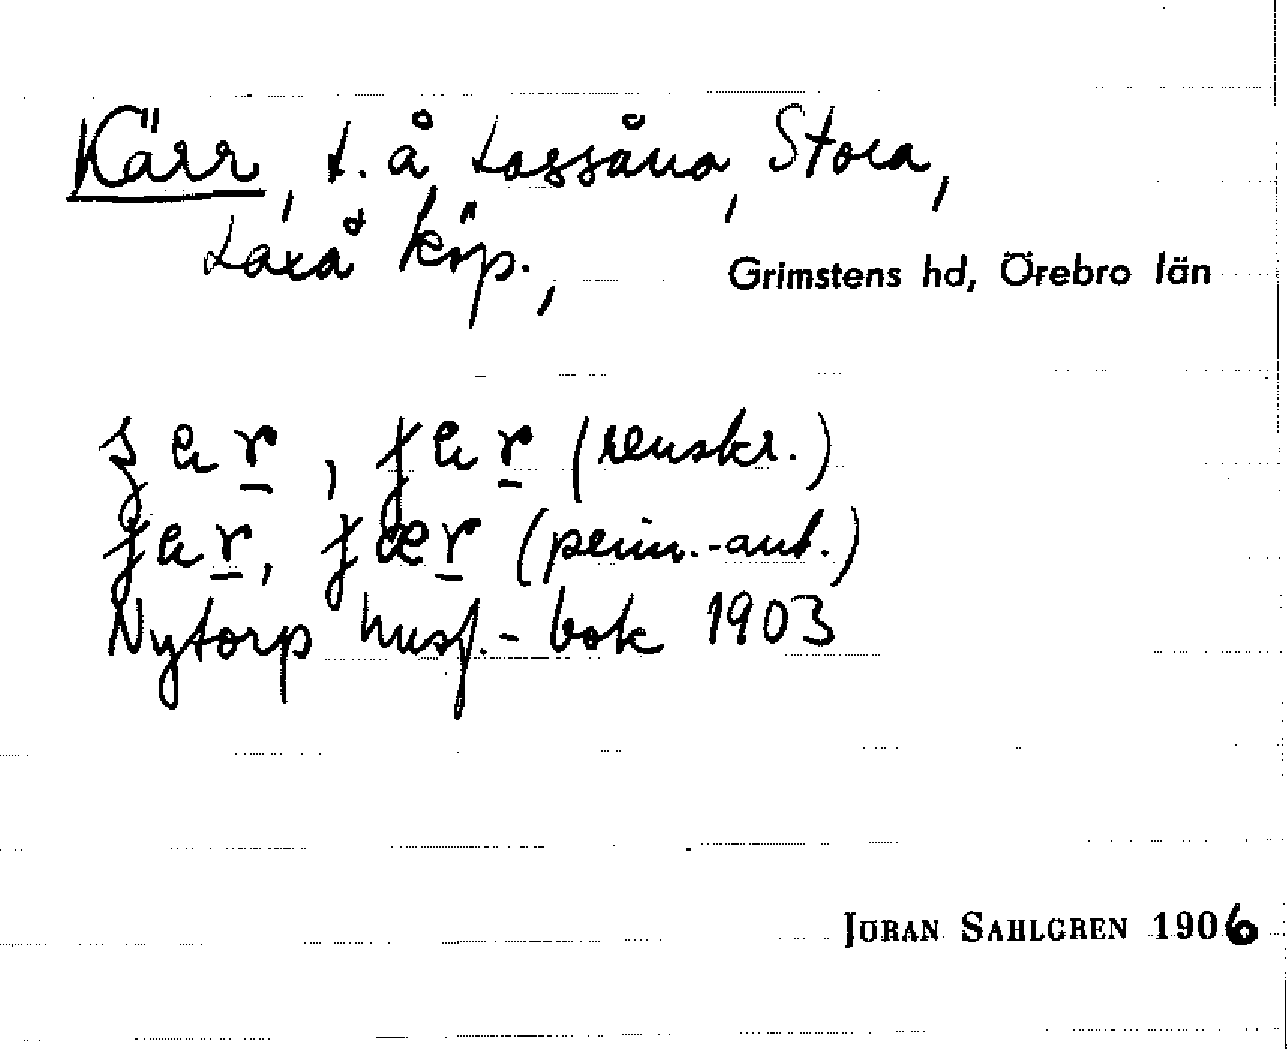 Kärr, t. å Lassåna, Stora,
Laxå köp.,
Grimstens hd, Örebro län
(renskr.)
(penn.-ant.)
Nytorp husf.-bok 1903
JÖRAN SAHLGREN 1906